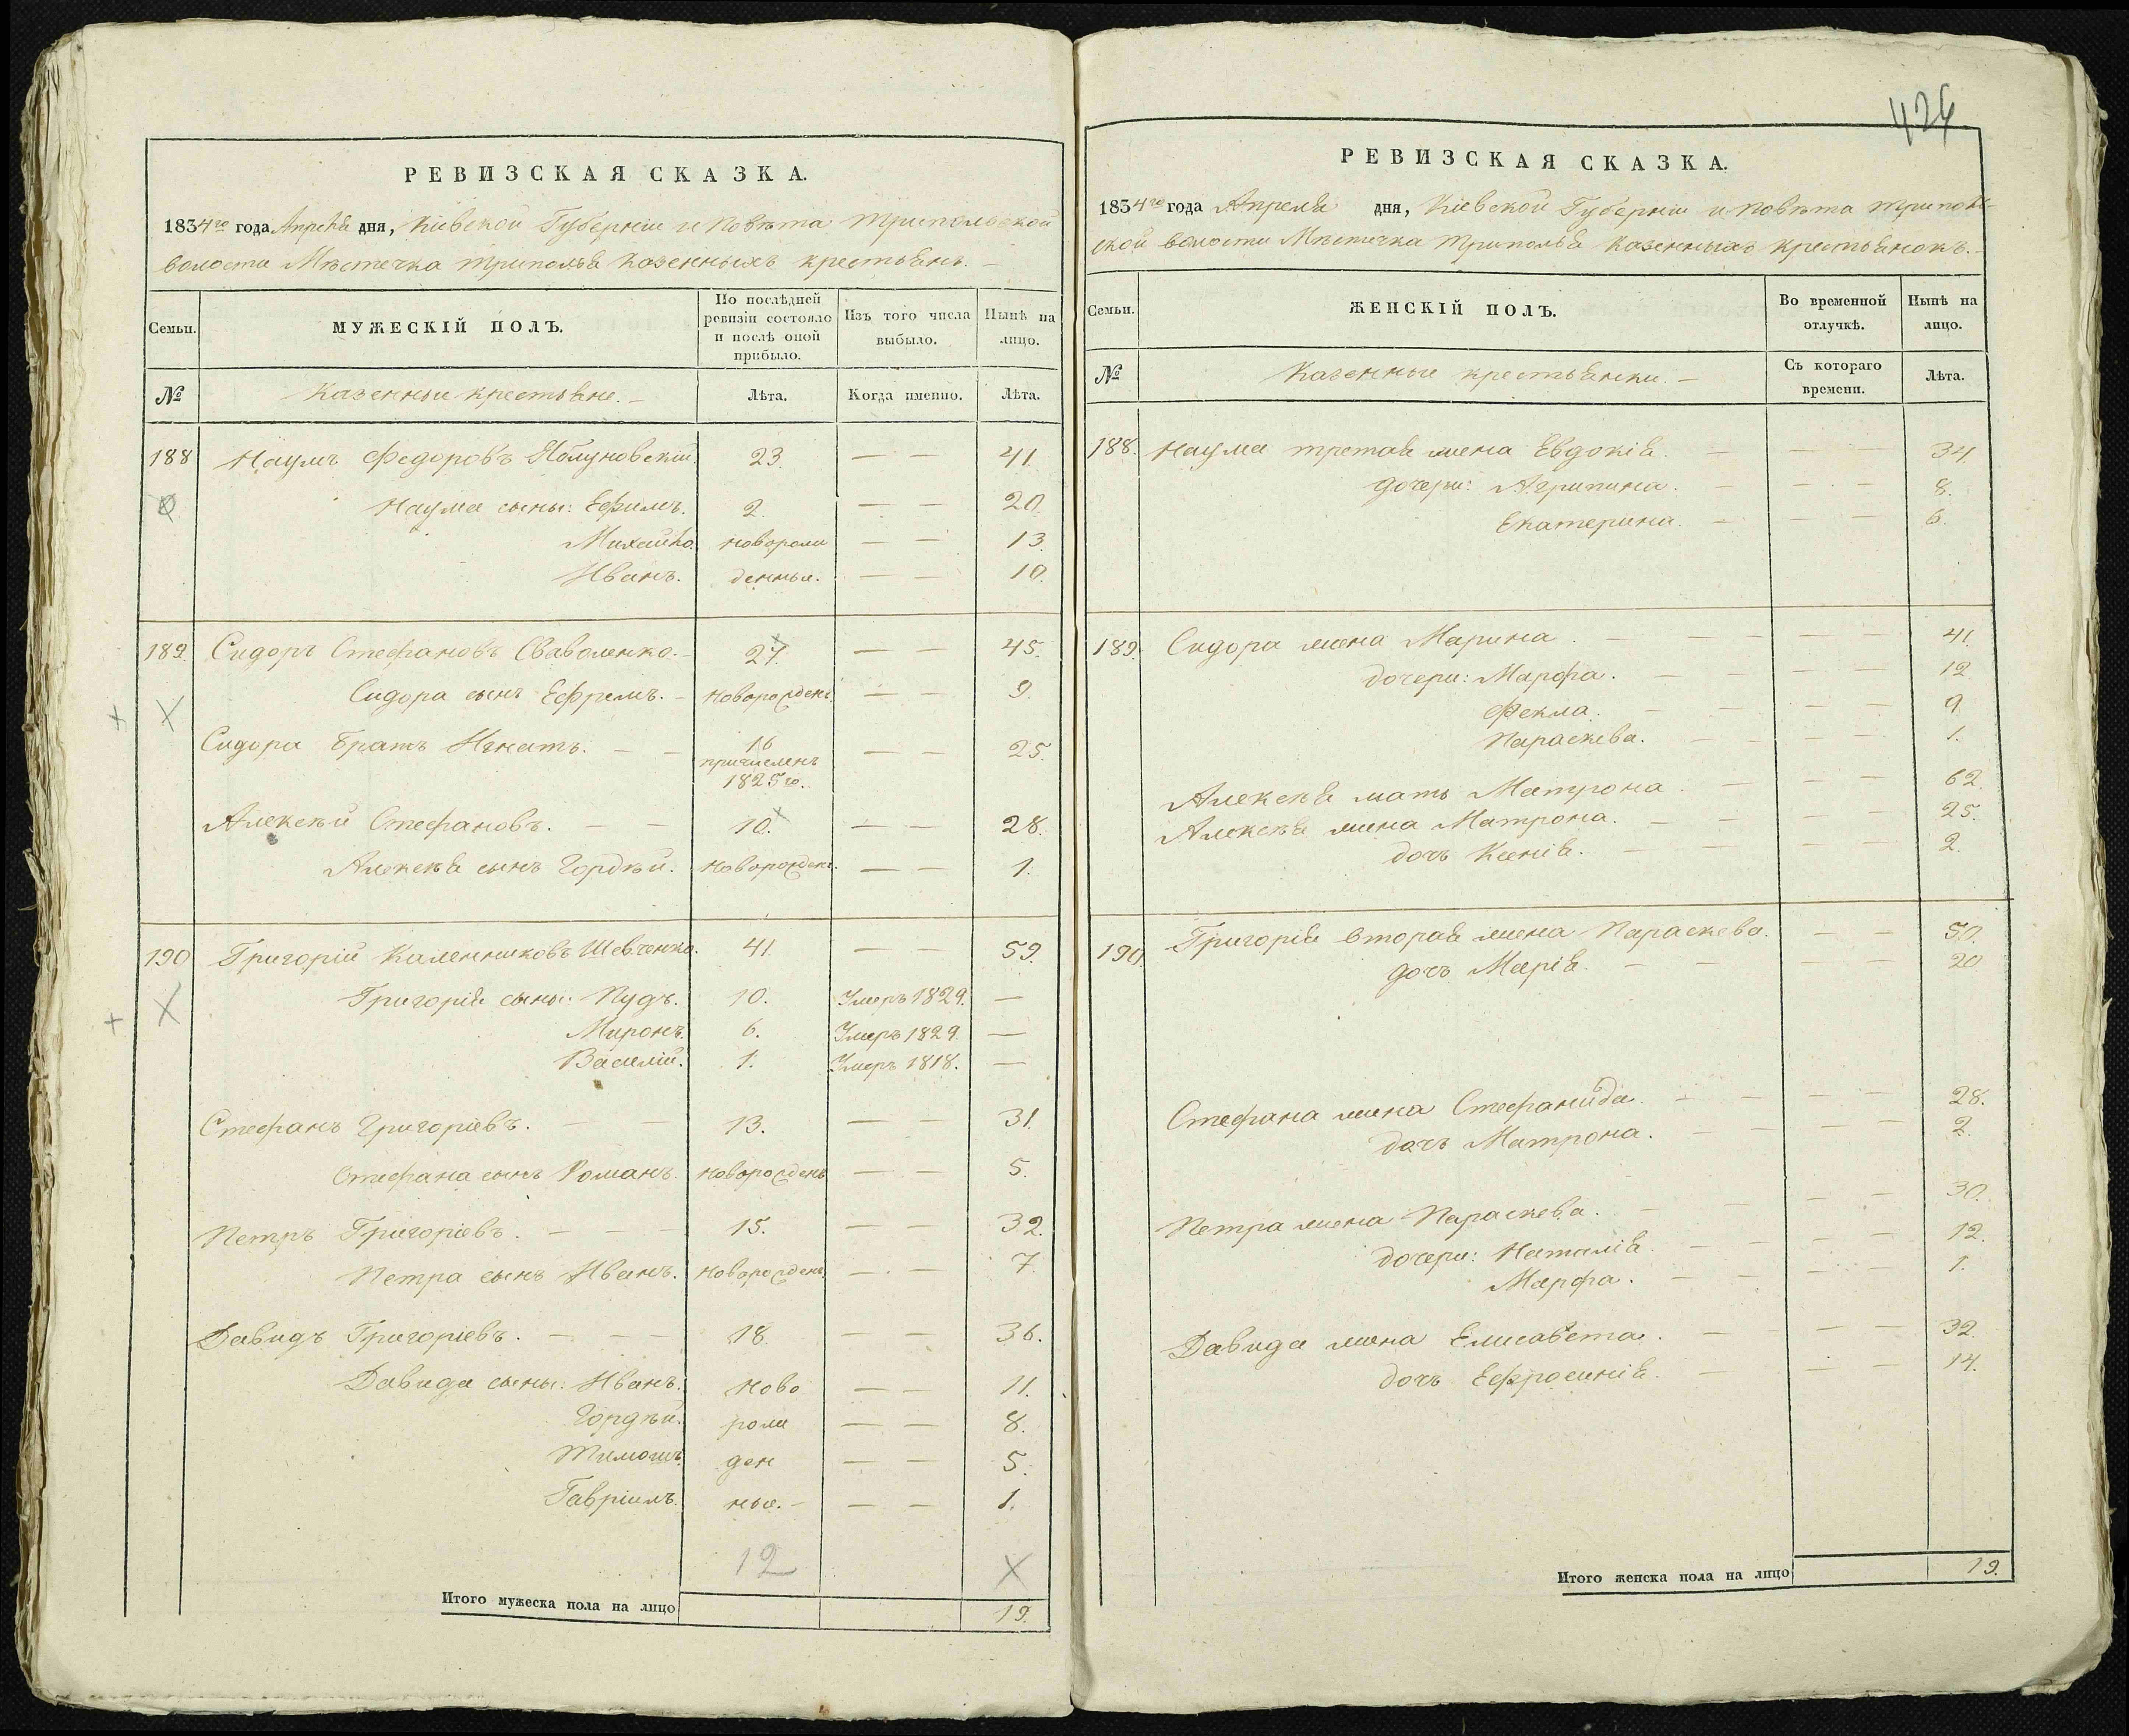 РЕВИЗСКАЯ СКАЗКА.
1834го года Апреля дня, Кіевской Губерніи и Повѣта Трипольской
волости Мѣстечка Триполья Казенныхъ крестьянъ. —
Семьи. МУЖЕСКІЙ ПОЛЪ. По послѣдней ревизіи состояло и послѣ оной прибыло. Изъ того числа выбыло. Нынѣ на лицо.
№ Казенные крестьяне. — Лѣта. Когда именно. Лѣта.
188 Наумъ Федоровъ Яблуновскій. 23. — — 41.
Наума сыны: Ефимъ. 2. — — 20.
Михайло. новорож — — 13.
Иванъ. денные. — — 10.
189. Сидоръ Стефановъ Сваволенко. — 27. — — 45.
Сидора сынъ Ефремъ. — новорожденъ — — 9.
Сидора братъ Игнатъ. — — 16 — — 25.
причисленъ
1825го.
Алексѣй Стефановъ. — — 10. — — 28.
Алексѣя сынъ Гордѣй. новорожденъ. — — 1.
190 Григорій Каленниковъ Шевченко. 41. — — 59.
Григорія сыны: Пудъ. 10. Умеръ 1829. —
Миронъ. 6. Умеръ 1829. —
Василій. 1. Умеръ 1818. —
Стефанъ Григоріевъ. — — 13. — — 31.
Стефана сынъ Романъ. новорожденъ — — 5.
Петръ Григоріевъ. — — — 15. — — 32.
Петра сынъ Иванъ. новорожденъ. — — 7.
Давидъ Григоріевъ. — — — 18. — — 36.
Давида сыны: Иванъ. ново — — 11.
Гордѣй. рож — — 8.
Тимошъ. ден — — 5.
Гавріилъ. ные. — — — 1.
12 X
Итого мужеска пола на лицо 19.
424
РЕВИЗСКАЯ СКАЗКА.
1834го года Апреля дня, Кіевской Губерніи и Повѣта Триполь-
ской волости Мѣстечка Триполья Казенныхъ крестьянокъ. —
Семьи. ЖЕНСКІЙ ПОЛЪ. Во временной отлучкѣ. Нынѣ на лицо.
№ Казенные крестьянки. — Съ котораго времени. Лѣта.
188. Наума третая жена Евдокія. — — — 34.
дочери: Агрипина. — — — 8.
Екатерина. — — — 6.
189. Сидора жена Марина. — — — — — 41.
дочери: Марфа. — — — — 12.
Фекла. — — — — 9
Параскева. — — — — 1.
Алексѣя мать Матрона. — — — 62.
Алексѣя жена Матрона. — — — — 25.
дочь Ксенія. — — — — 2.
190. Григорія вторая жена Параскева. — — 50.
дочь Марія. — — — — 20
Стефана жена Стефанида. — — — — 28.
дочь Матрона. — — — — 2.
Петра жена Параскева. — — — — 30.
дочери: Наталія. — — — — 12.
Марфа. — — — — 1.
Давида жена Елисавета. — — — — 32
дочь Ефросинія. — — — 14.
Итого женска пола на лицо 19.